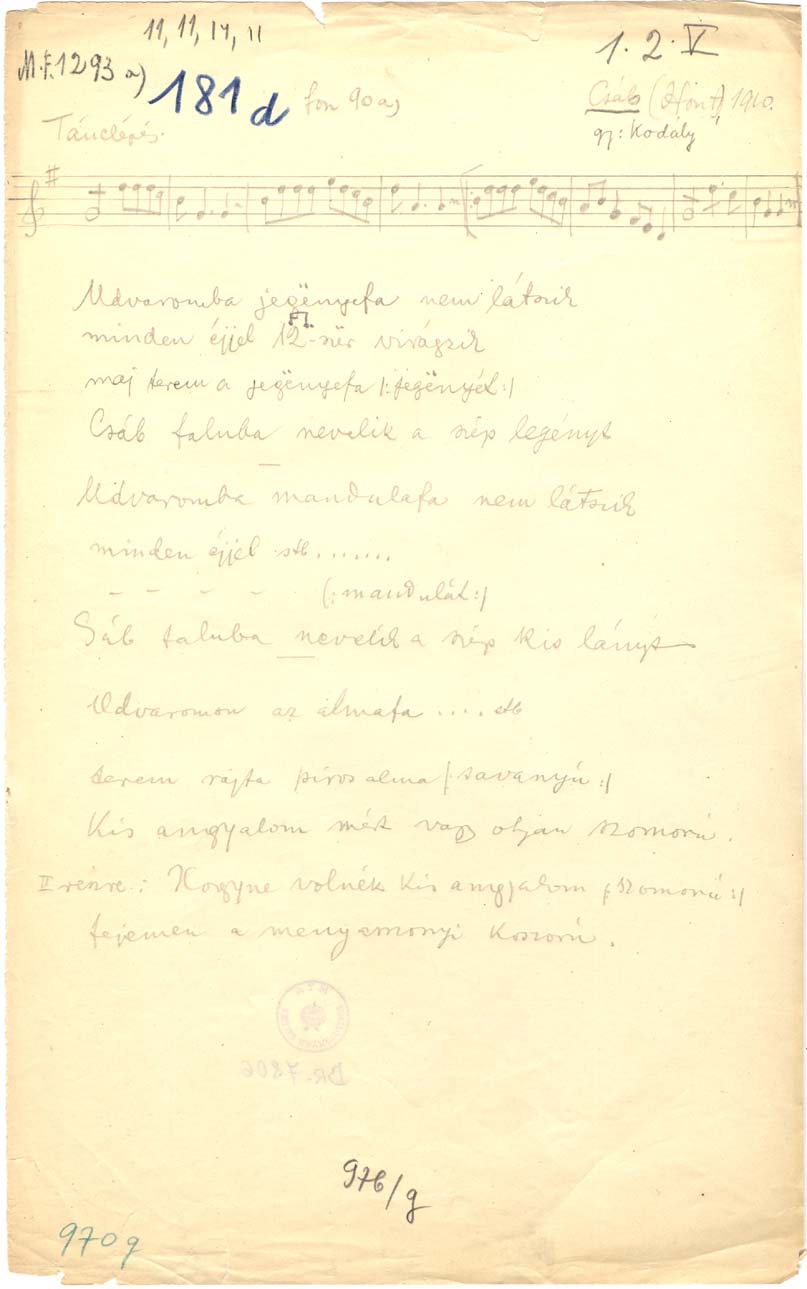 11, 11, 14, 11
1. 2. V
M.F. 1293 a)
181 d
fon 90 a)
Csáb (Hont) 1910.
gy: Kodály
Tánclépés.
Udvaromba jegënyefa nem látszik
minden éjjel 12-sër virágzik
maj terem a jegënyefa /: jegënyét :/
Csáb faluba nevelik a szép legényt
Udvaromba mandulafa nem látszik
minden éjjel stb.......
- - - - (: mandulát :/
Sáb faluba nevelik a szép kis lányt
Udvaromon az almafa .... stb
terem rajta piros alma /: savanyú :/
Kis angyalom mért vagy olyan szomorú.
II részre: Hogyne volnék kis angyalom /: szomorú :/
fejemen a menyasszonyi koszorú.
BR-7806
976/g
970 g